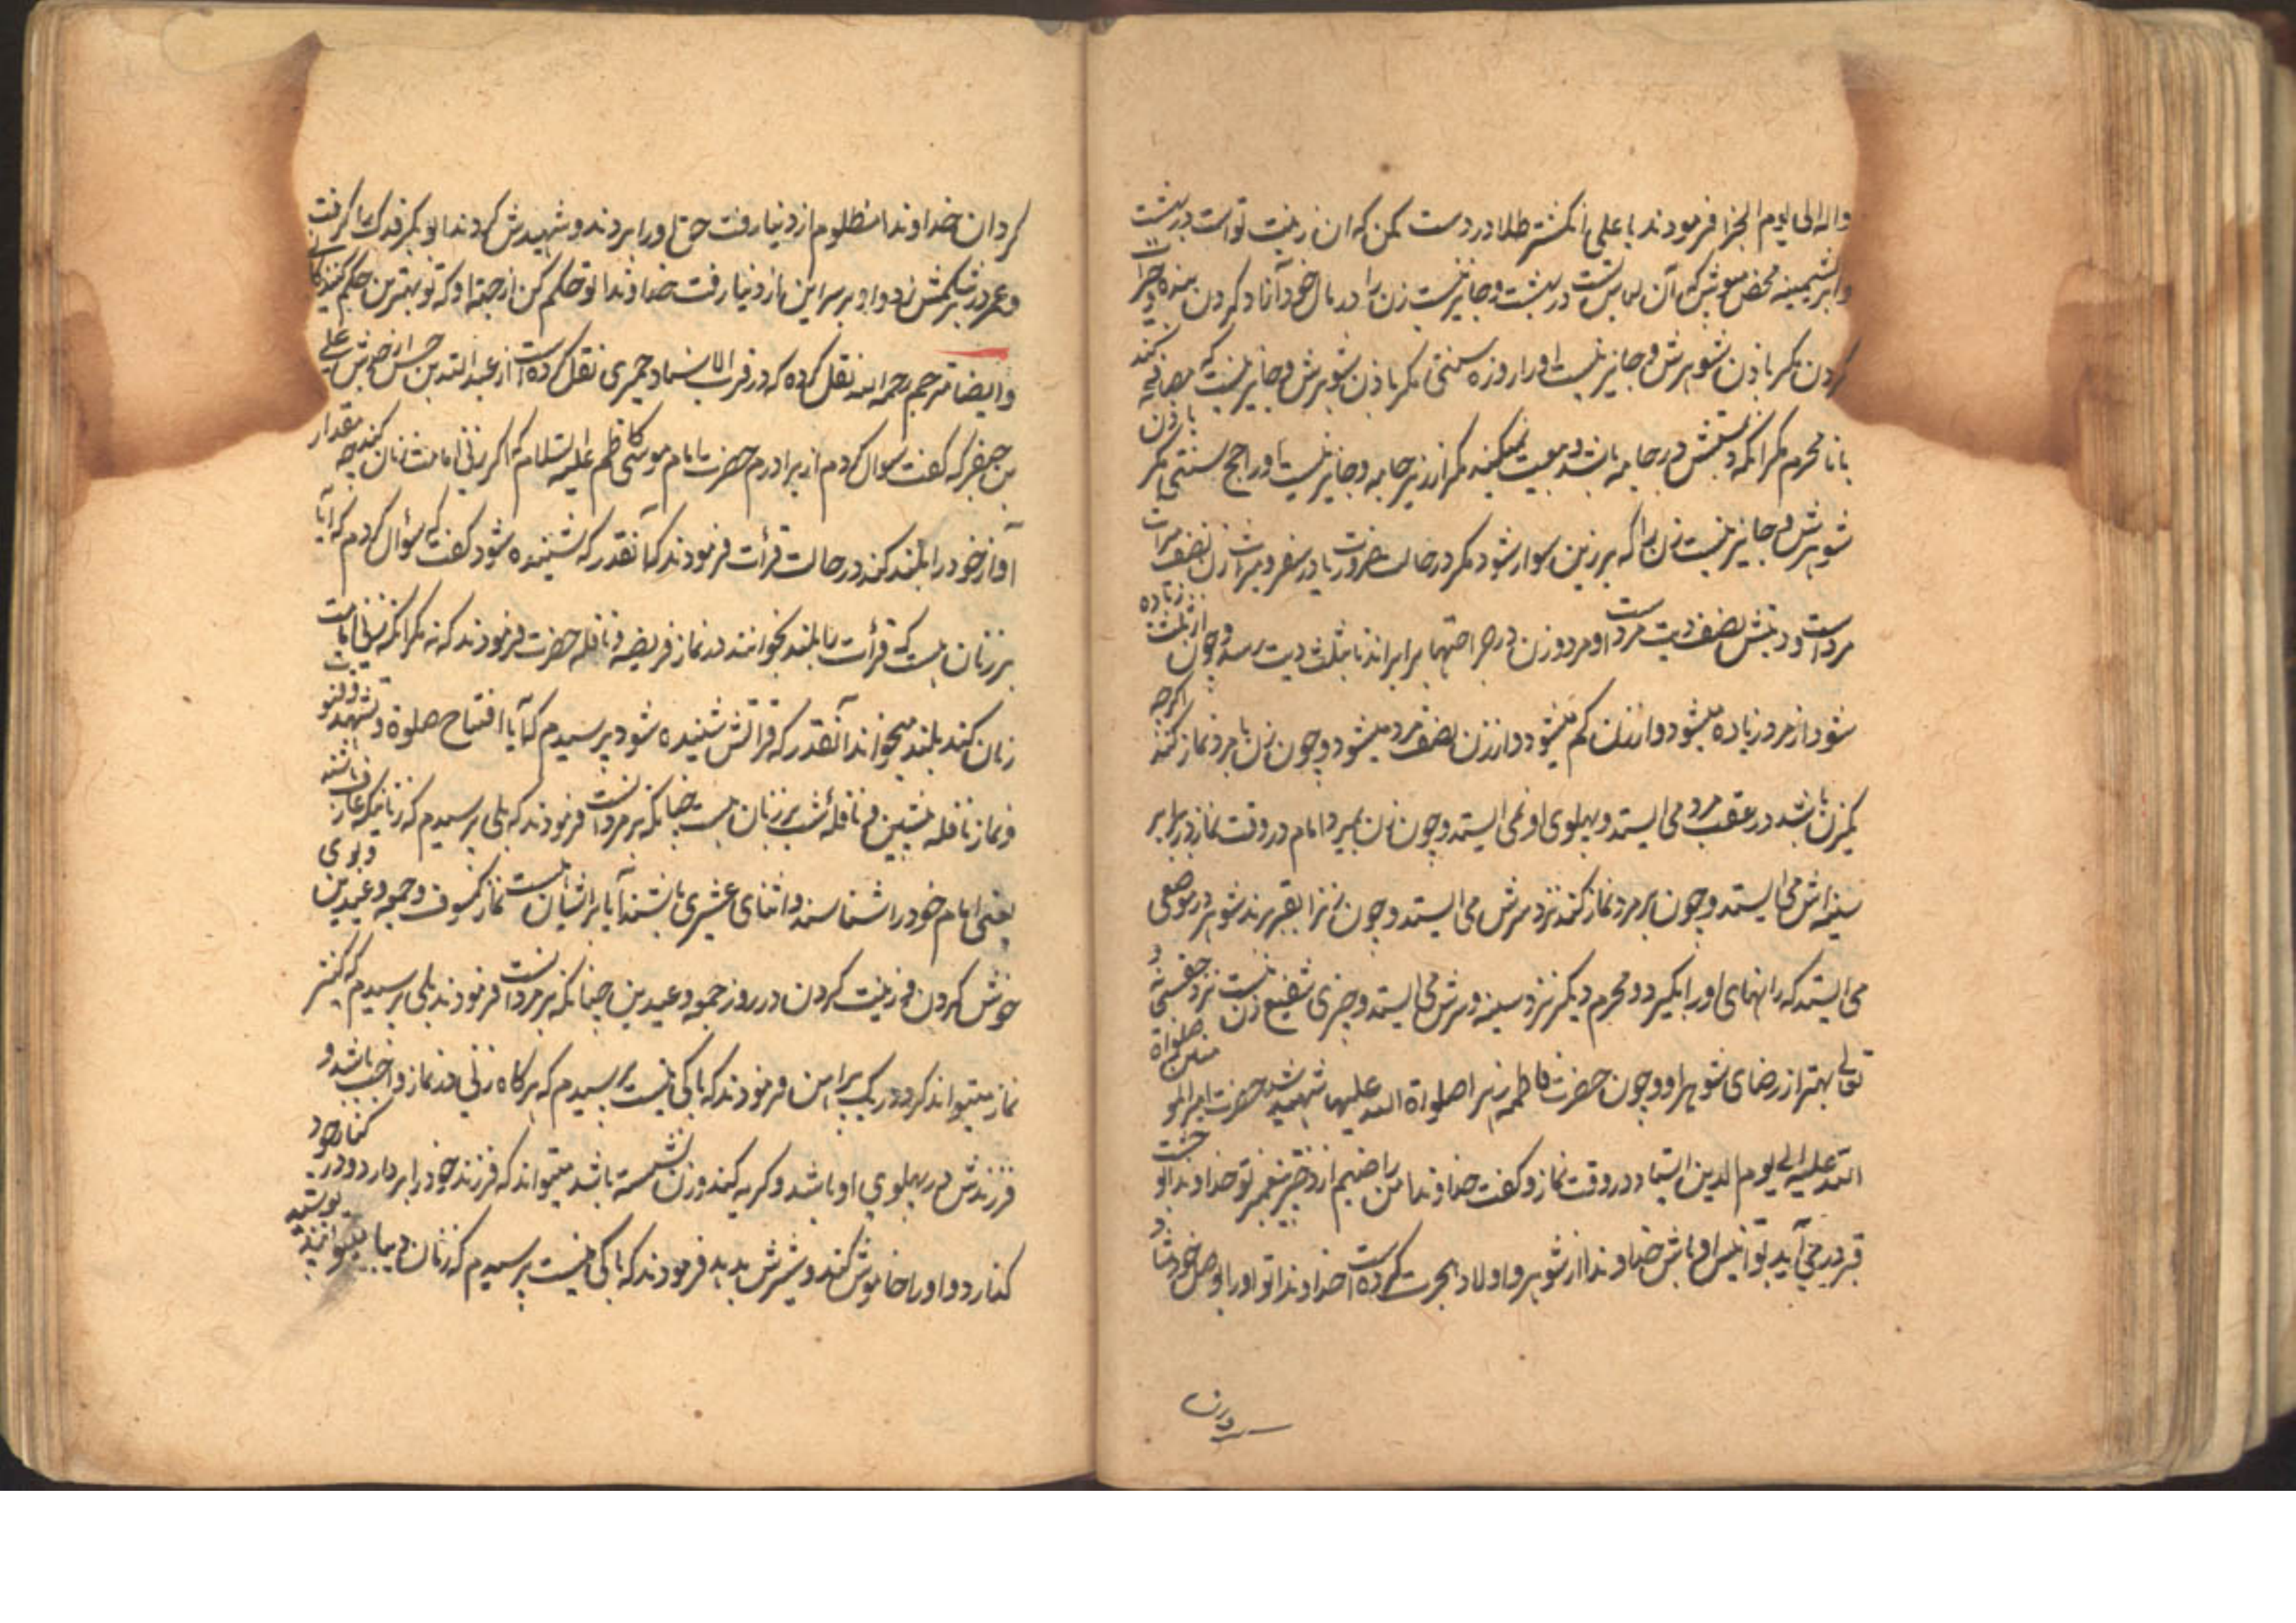 واله الی یوم الجزا فرمودند یا علی انکشتر طلا در دست مکن که ان زینت تو است در بهشت
و ابریشمینه محض مپوش که آن لباس تست در بهشت و جایز نیست زن را در مال خود آزاد کردن بنده و خیرات
کردن مکر باذن شوهرش و جایز نیست او را روزه سنتی مکر باذن شوهرش و جایز نیست که مصافحه کند
با نامحرم مکر انکه دستش در جامه باشد و بیعت نمیکند مکر از زیر جامه و جایز نیست او را حج سنتی مکر باذن
شوهرش و جایز نیست زن را که بر زین سوار شود مکر در حالت ضرورت یا در سفر و میراث زن نصف میراث
مرد است و دیتش نصف دیت مرد است و مرد و زن در جراحتها برابراند تا بثلث دیت برسد و چون از ثلث زیاده
شود از مرد زیاده میشود و از زن کم میشود و از زن نصف مرد میشود و چون زن با مرد نماز کند اکرچه
کمتر باشد در عقب مرد می ایستد و پهلوی او نمی ایستد و چون زن بمیرد امام در وقت نماز در برابر
سینه اش می ایستد و چون بر مرد نماز کند نزد سرش می ایستد و چون زن را بقبر برند شوهر در موضعی
می ایستد که رانهای او را بکیرد و محرم دیکر نزد سینه و سرش می ایستد و چیزی شفیع زن نیست نزد حقسبحانه و
تعالی بهتر از رضای شوهر او و چون حضرت فاطمه زهرا صلواة الله علیها شهید شد حضرت امیرالمؤمنین صلواة
الله علیه الی یوم الدین ایستاد در وقت نماز و کفت خداوندا من راضیم از دختر پیغمبر تو خداوندا او وحشت
قبر در می آید تو انیس او باش خداوندا از شوهر و اولاد هجرت کرده است خداوندا تو او را بوصل خود شاد
کردان خداوندا مظلوم از دنیا رفت حق او را بردند و شهیدش کردند ابوبکر فدک را کرفت
و عمر در بشکمش زد و او بر سر این از دنیا رفت خداوندا تو حکم کن از جهة او که تو بهترین حکم کنندکانی
و ایضا مترجم رحمه الله نقل کرده که در قرب الاسناد حمیری نقل کرده است از عبدالله بن حسن از جدش علی
بن جعفر که کفت سوال کردم از برادرم حضرت امام موسی کاظم علیه السلام که اکر زنی امامت زنان کند چه مقدار
آواز خود را بلند کند در حالت قرأت فرمودند که آنقدر که شنیده شود کفت که سؤال کردم که آیا
بر زنان هست که قرأت را بلند بخوانند در نماز فریضه و نافله حضرت فرمودند که نه مکر انکه زنی امامت
زنان کند بلند میخواند آنقدر که قرائتش شنیده شود پرسیدم که آیا افتتاح صلوة و تشهد و قنوت
و نماز نافله و نافله شب بر زنان هست چنانکه بر مردانست فرمودند که بلی پرسیدم که زنانیکه عارف باشند
یعنی امام خود را شناسند و اثنای عشری باشند آیا بر ایشان هست نماز کسوف و جمعه و عیدین و بوی
خوش کردن و زینت کردن در روز جمعه و عیدین چنانکه بر مردانست فرمودند بلی پرسیدم که کنیز
نماز میتواند کرد در یک پیراهن فرمودند که باکی نیست پرسیدم که هر کاه زنی در نماز واجب باشد و
فرزندش در پهلوی او باشد و کریه کند و زن نشسته باشد میتواند که فرزند خود را بردارد و در کنار خود
کذارد و او را خاموش کند و شیرش بدهد فرمودند که باکی نیست پرسیدم که زنان دیبا میتوانند پوشید